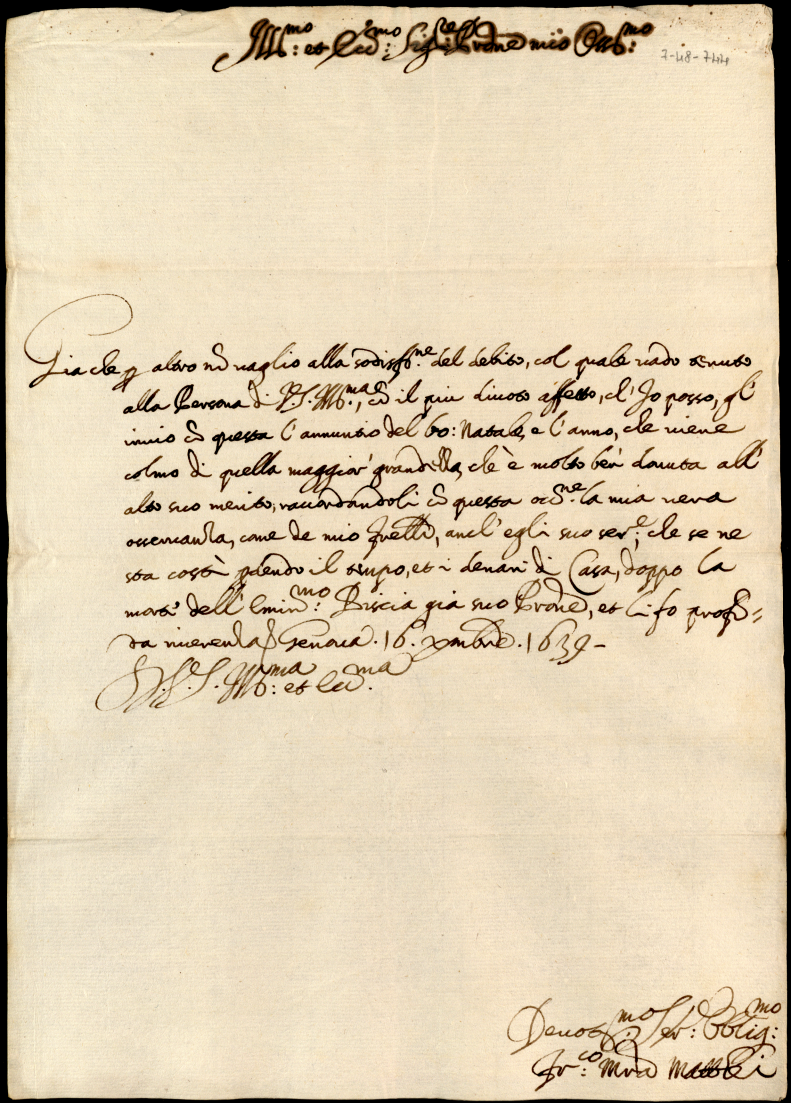 Ill.mo et Ecc.mo Sig.re e Prone mio Oss.mo
7-48-744
Gia che p altro nõ vaglio alla sodisf.ne del debito, col quale vado tenuto
alla Persona di V.S. Ill.ma, cõ il piu divoto affetto, ch' Io posso, gl'
invio cõ questa l'annuntio del bo: Natale, e l'anno, che viene
colmo di quella maggior' grandezza, ch'è molto ben' dovuta all'
alto suo merito, raccordandoli cõ questa occ.ne la mia vera
osservanza, come de mio Frello, anch'egli suo ser.e, che se ne
sta costì pdendo il tempo, et i denari di Casa, doppo la
morte dell' Emin.mo: Biscia già suo Prone, et li fo profõ=
da riverenza Genova. 16. Xmbre. 1639-
D. V. S. Ill.ma: et Ecc.ma
Devot.mo Ser: Obblig.mo:
Fr.co: Mria